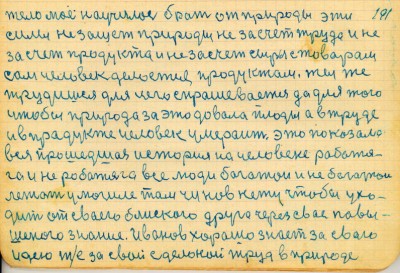 тело моё научилос брат от природы эти 191
сили не защет природы не засчет труда и не
за счет продукта и не засчет сыря с товарам
сам человек делостия продуктам. Ми же
трудишся для чего спрашевается да для того
чтобы природа за это довала плоды а в труде
и в прадукте человек умераит. Это показала
вся прошедшая история на человеке работя-
га и не работяга все люди богатои и не богатои
лежат у могиле там чи нов нету чтобы ухо-
дит от сваего блиского друга через свае павы-
шеного знание. Иванов хорашо знает за сваго
идею т/е за свой сделоный труд в природе